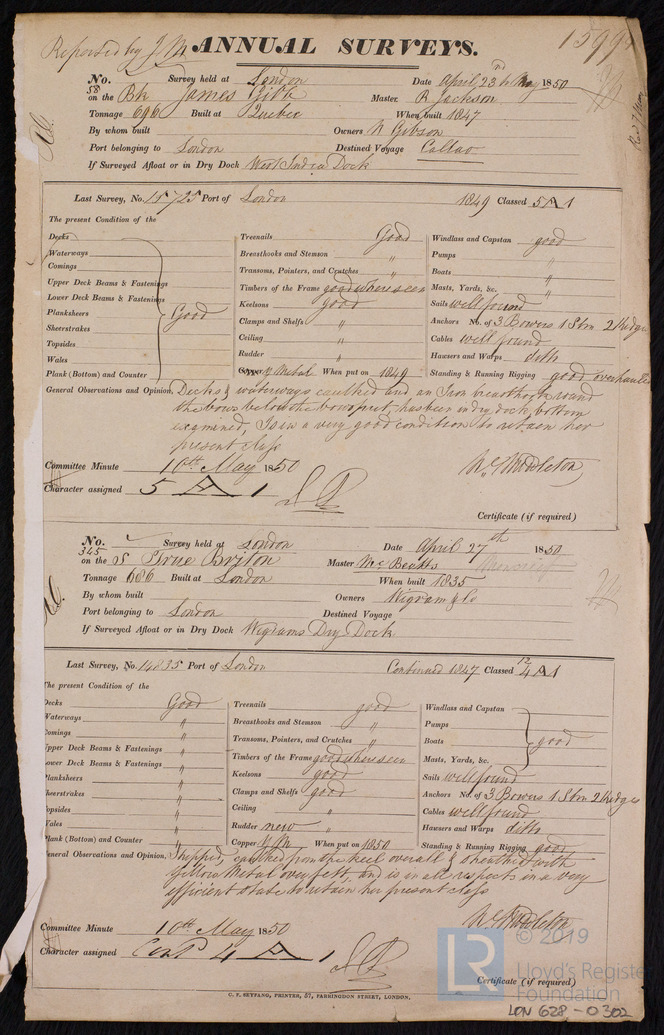 Reported by J M ANNUAL SURVEYS. 1599
No. 58 Survey held at London Date April 23rd to May 1850
on the Bk James Gibb Master R Jackson
Tonnage 696 Built at Quebec When built 1847
By whom built Owners N Gibson
Port belonging to London Destined Voyage Callao
If Surveyed Afloat or in Dry Dock West India Dock
Last Survey, No. 15725 Port of London 1849 Classed 5 A 1
The present Condition of the
Decks Good Treenails Good Windlass and Capstan good
Waterways Breasthooks and Stemson " Pumps "
Comings Transoms, Pointers, and Crutches " Boats "
Upper Deck Beams & Fastenings Timbers of the Frame good where seen Masts, Yards, &c. "
Lower Deck Beams & Fastenings Keelsons good Sails well found
Planksheers Clamps and Shelfs " Anchors No. of 3 Bowers 1 Strm 2 Kedges
Sheerstrakes Ceiling " Cables well found
Topsides Rudder " Hawsers and Warps ditto
Wales Copper Y Metal When put on 1849 Standing & Running Rigging good overhauled
Plank (Bottom) and Counter
General Observations and Opinion, Decks & waterways caulked and an Iron breasthook round
the bows below the bowsprit, has been in dry dock bottom
examined, & is in a very good condition to retain her
present class
Committee Minute 10th May 1850 Wc Middleton
Character assigned 5 A 1
Certificate (if required)
No. 345 Survey held at London Date April 27th 1850
on the S True Briton Master Mc Beatts
Tonnage 686 Built at London When built 1835
By whom built Owners Wigram & Co
Port belonging to London Destined Voyage
If Surveyed Afloat or in Dry Dock Wigrams Dry Dock
Last Survey, No. 14835 Port of London Continued 1847 Classed 12 4 A 1
The present Condition of the
Decks Good Treenails good Windlass and Capstan good
Waterways " Breasthooks and Stemson " Pumps
Comings " Transoms, Pointers, and Crutches " Boats
Upper Deck Beams & Fastenings " Timbers of the Frame good where seen Masts, Yards, &c.
Lower Deck Beams & Fastenings " Keelsons good Sails well found
Planksheers " Clamps and Shelfs good Anchors No. of 3 Bowers 1 Strm 2 Kedges
Sheerstrakes " Ceiling " Cables well found
Topsides " Rudder new Hawsers and Warps ditto
Wales " Copper Y M When put on 1850 Standing & Running Rigging good
Plank (Bottom) and Counter "
General Observations and Opinion, Stripped, caulked from the keel overall & sheathed with
Yellow Metal over felt, and is in all respects in a very
efficient state to retain her present class
Committee Minute 10th May 1850 Wc Middleton
Character assigned Contd 4 A 1
Certificate (if required)
C. F. SEYFANG, PRINTER, 57, FARRINGDON STREET, LONDON.
LR © 2019
Lloyd's Register
Foundation
LON 628-0302